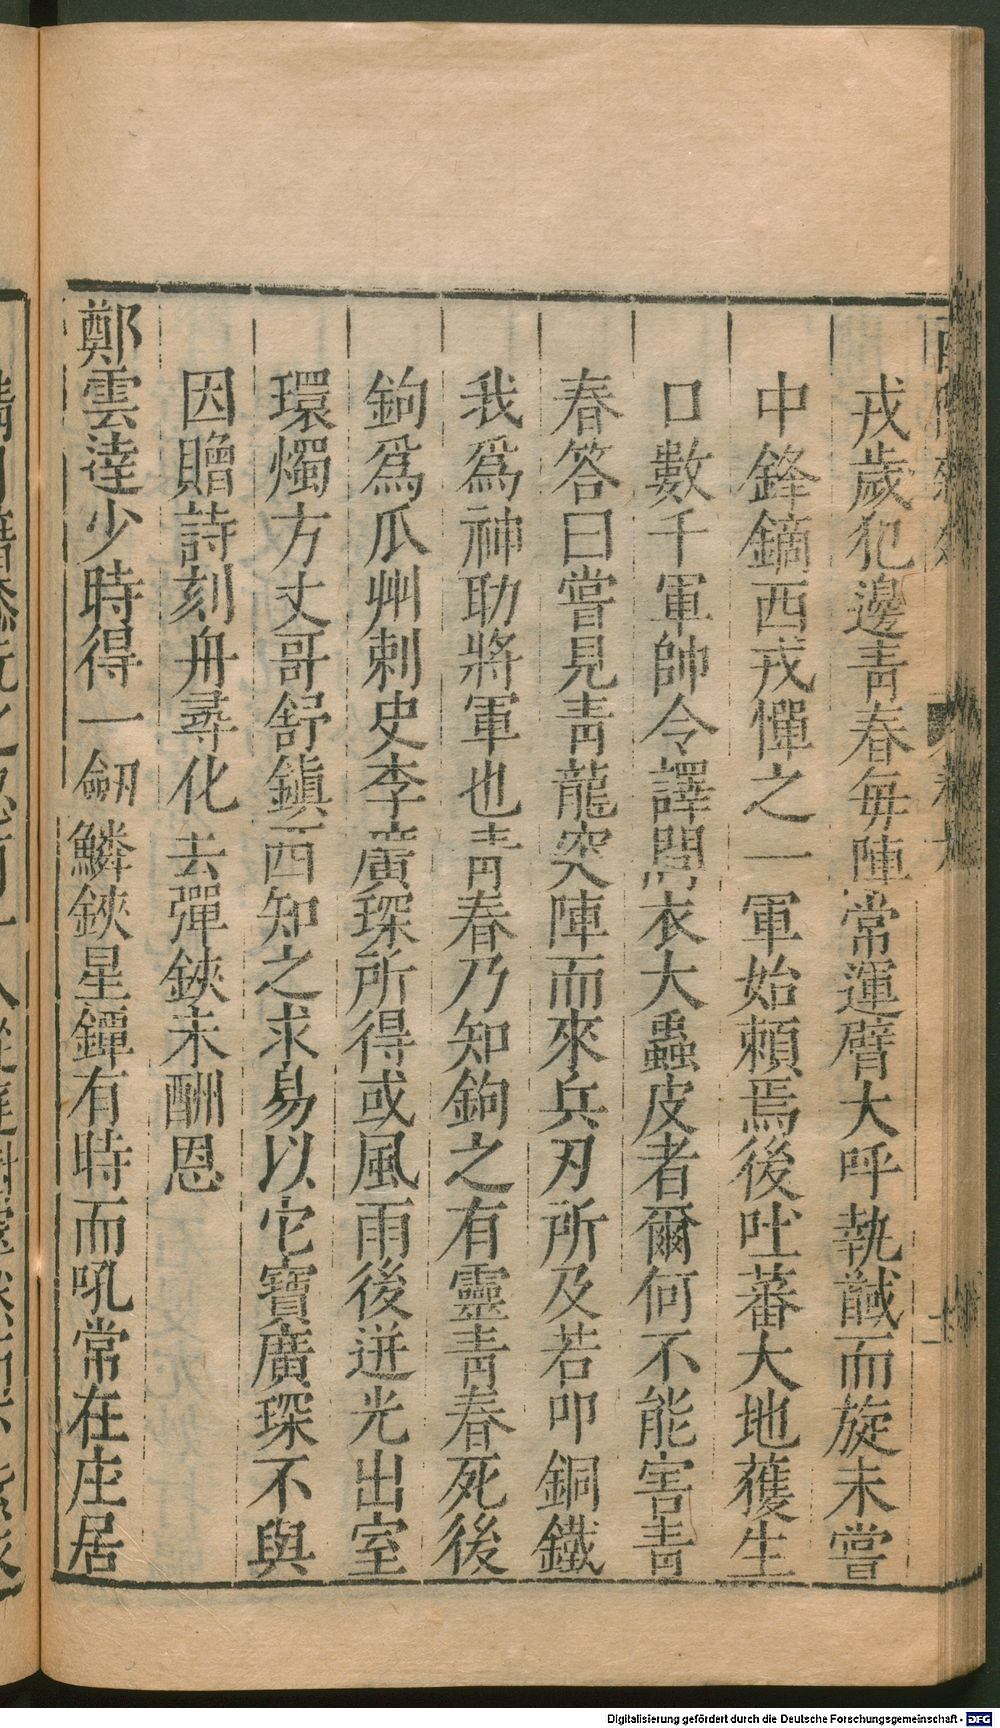 戎歲犯邊青春每陣常運臂大呼執馘而旋未嘗
中鋒鏑西戎憚之一軍始頼焉後吐蕃大地獲生
口數千軍帥令譯問衣大蟲皮者爾何不能害青
春答曰嘗見青龍突陣而來兵刃所及若叩銅鐵
我爲神助將軍也青春乃知鉤之有靈青春死後
鉤爲瓜州刺史李廣琛所得或風雨後迸光出室
環燭方丈哥舒鎮西知之求易以它寶廣琛不與
因贈詩刻舟尋化去彈鋏未酬恩
鄭雲逵少時得一劒鱗鋏星鐔有時而吼常在庄居
Digitalisierung gefördert durch die Deutsche Forschungsgemeinschaft - DFG